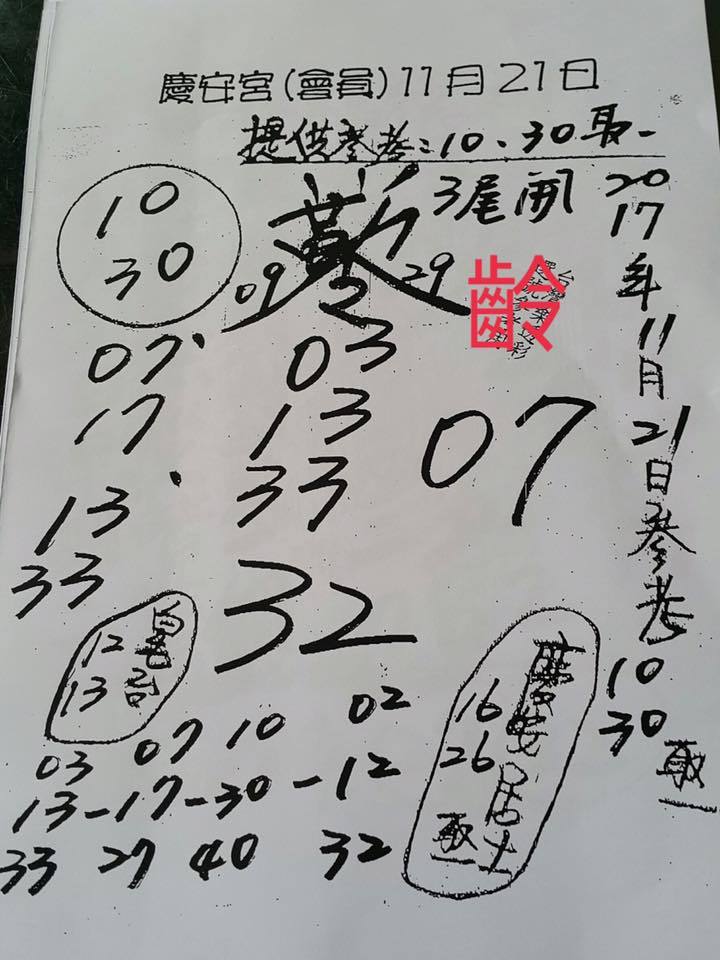 慶安宮(會員)11月21日
提供參考:10、30取一
3尾開
10
30
09 2 29
齡
07
17
03
13
33
13
33
07
32
12
13
慶安居士
16
26
取一
2017年11月21日參考
10
30
取一
03 07 10 02
13-17-30-12
33 27 40 32